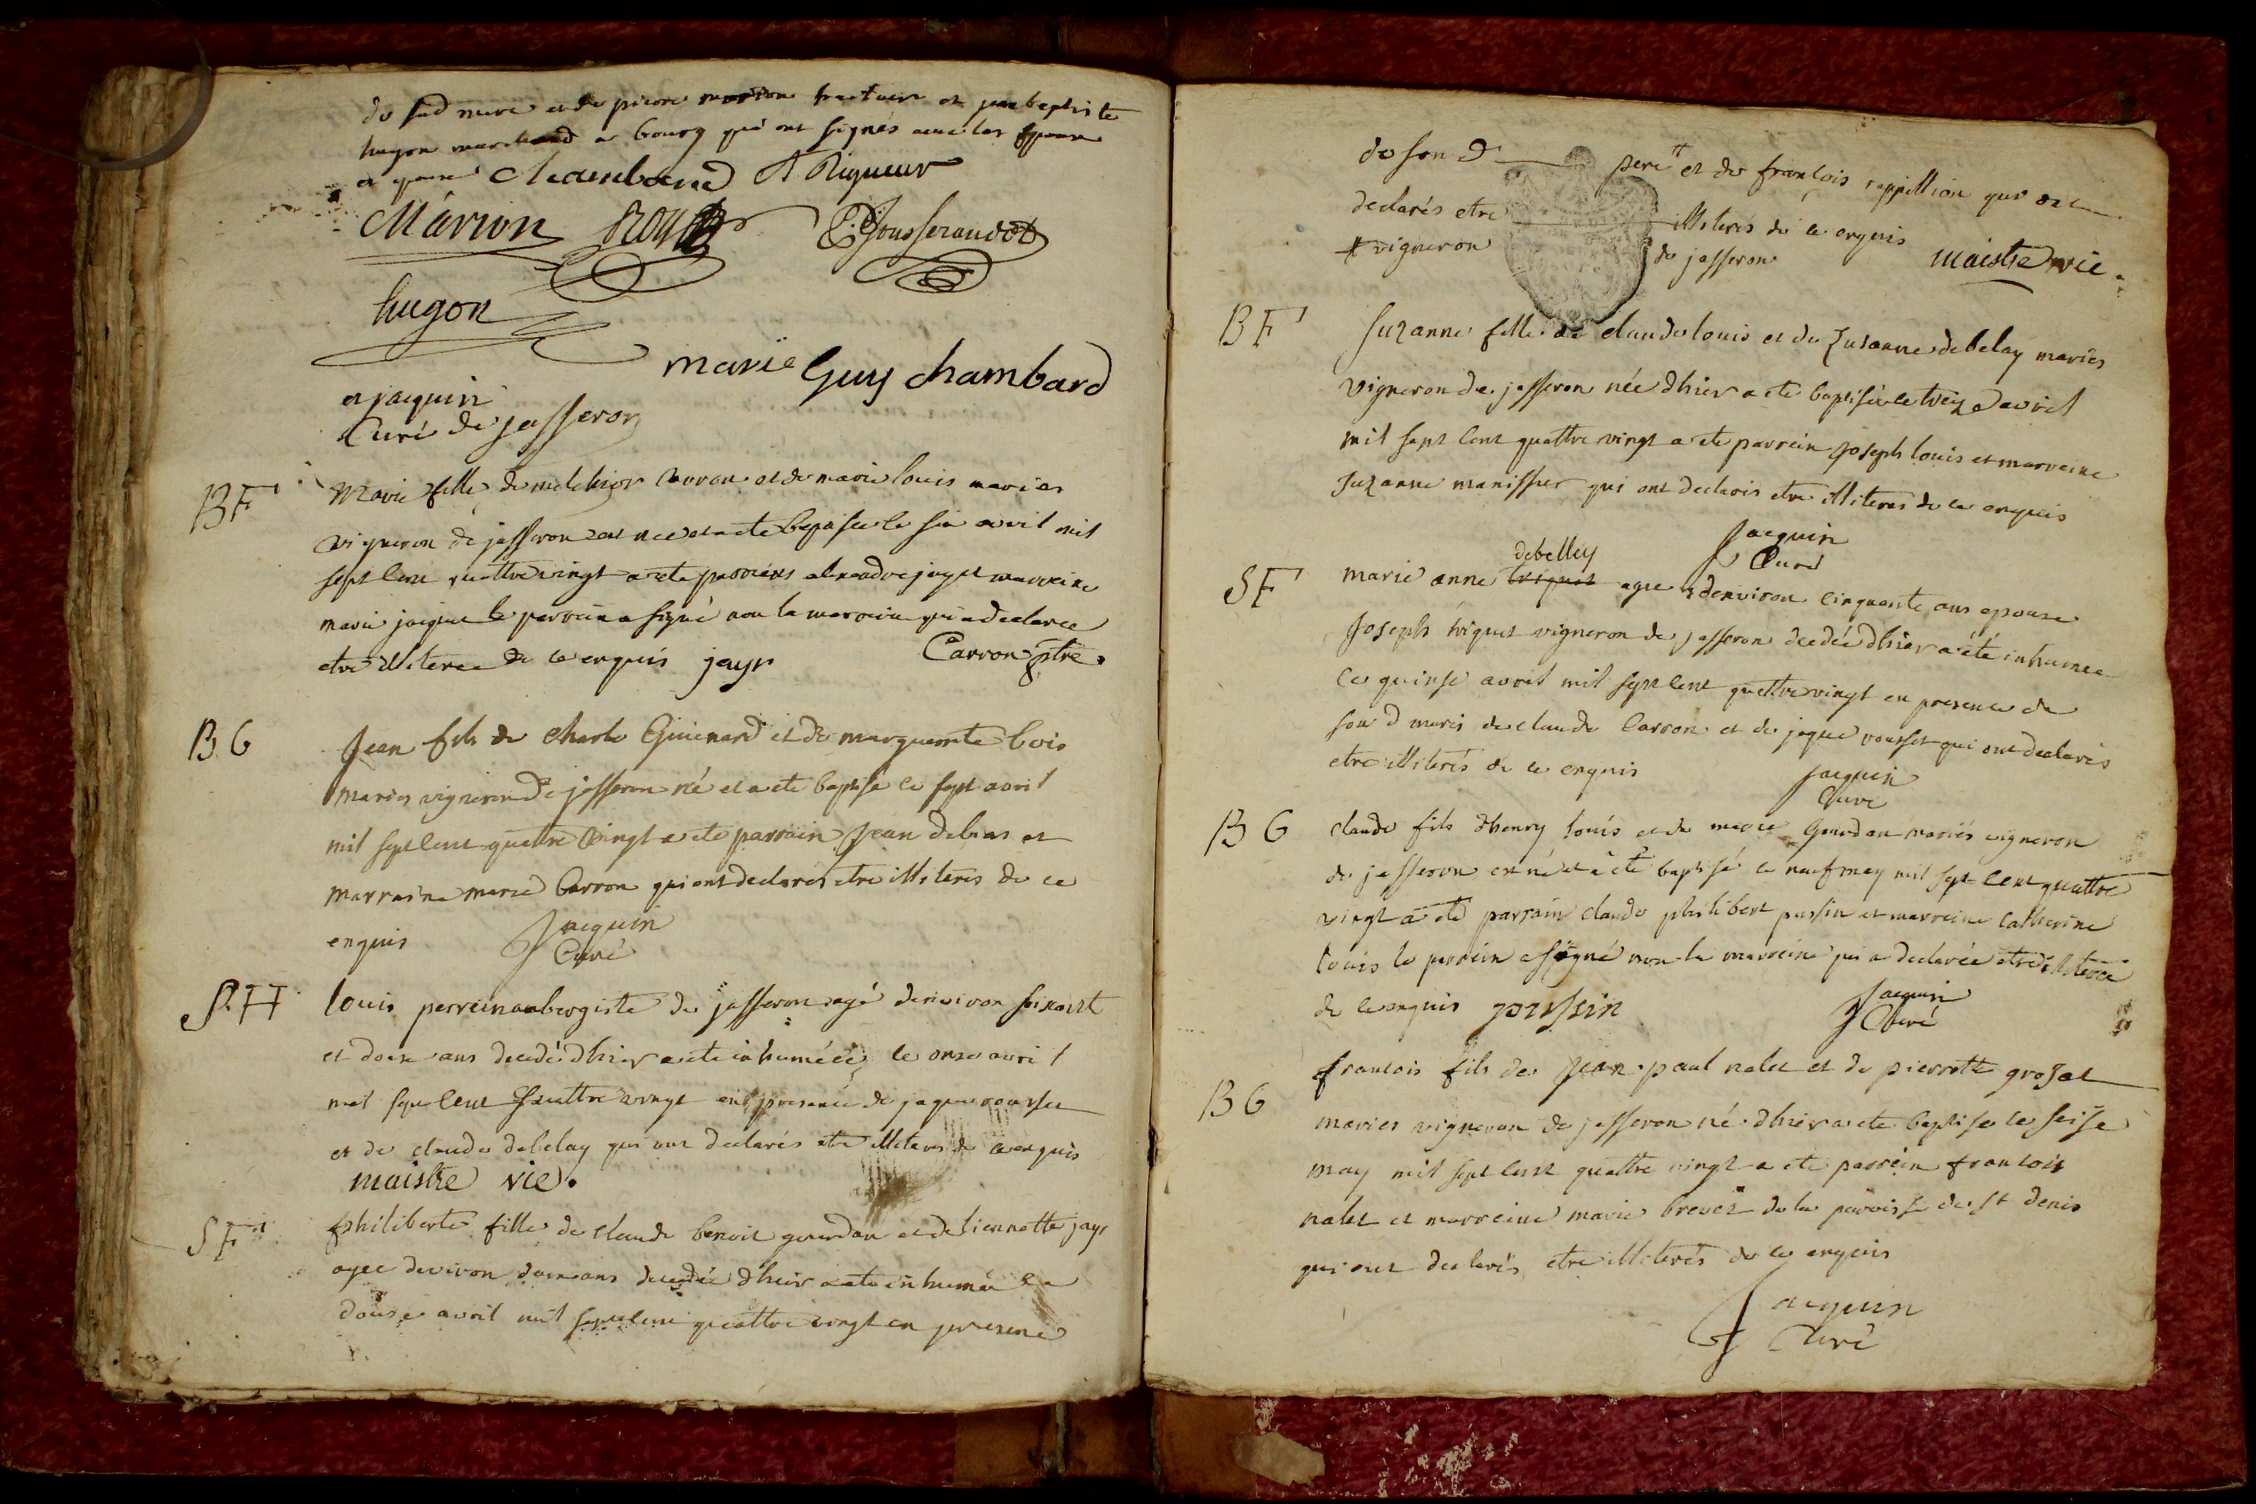 du sud mure et de pierre marion traiteur et jean baptiste
hugon marchand a bourg qui ont signés avec les epoux
et epouse Chambard A Rigueur
Marion ROUX P. Jousserandot
hugon
marie Guy chambard
et jacquin
Curé de jasseron
BF
Marie fille de melchior carron et de marie louis mariés
vigneron de jasseron est nee et a ete baptisee le six avril mil
sept cent quattre vingt a ete parrein jayr et marreine
marie le parrein a signé non la marreine qui a declaree
etre illiteree de ce enquis jayr Carron ptre
BG
Jean fils de Charle Guienard et de marguerite bois
mariés vigneron de jasseron né et a ete baptisé le sept avril
mil sept cent quattre vingt a ete parrain Jean debras et
marraine marie Carron qui ont declarés etre illiterés de ce
enquis Jacquin
Curé
SH
louis perrein aubergiste de jasseron agé denviron soixante
et douze ans decedé dhier a ete inhumé le onze avril
mil sept cent quattre vingt en presence de jaque rousset
et de claude debelay qui ont declarés etre illiteres de ce enquis
maistre vic.
SF
philiberte fille de claude benoit gourdan et de tiennette jayr
agee denviron ans decedée dhier a ete inhumée le
douse avril mil sept cent quattre vingt en presence
de son d pere # et de francois rappillion qui ont
declarés etre illiterés de ce enquis
# vigneron de jasseron maistre vic.
BF
Suzanne fille de claude louis et de Suzanne debelay mariés
vigneron de jasseron née dhier a ete baptisée le treize avril
mil sept cent quattre vingt a ete parrein joseph louis et marreine
Suzanne manissier qui ont declarés etre illiterés de ce enquis
Jacquin
Curé
SF
debelley
marie anne triquet agee denviron cinquante ans epouse
Joseph triquet vigneron de jasseron decedée dhier a été inhumee
le quinse avril mil sept cent quattre vingt en presence de
son d maris de claude Carron et de jaque rousset qui ont declarés
etre illiterés de ce enquis Jacquin
Curé
BG
claude fils dhenry louis et de marie Gourdan mariés vigneron
de jasseron est né et a eté baptisé le neuf may mil sept cent quattre
vingt a eté parrain claude philibert pussin et marreine Catherine
louis le parrein a signé non la marreine qui a declarée etre illiterée
de ce enquis poussin Jacquin
Curé
BG
francois fils de Jean paul nalet et de pierrette grosat
mariés vigneron de jasseron né dhier a ete baptisé le seise
may mil sept cent quattre vingt a ete parrein francois
nalet et marreine marie brevet de la paroisse de st denis
qui ont declarés etre illiterés de ce enquis
Jacquin
Curé